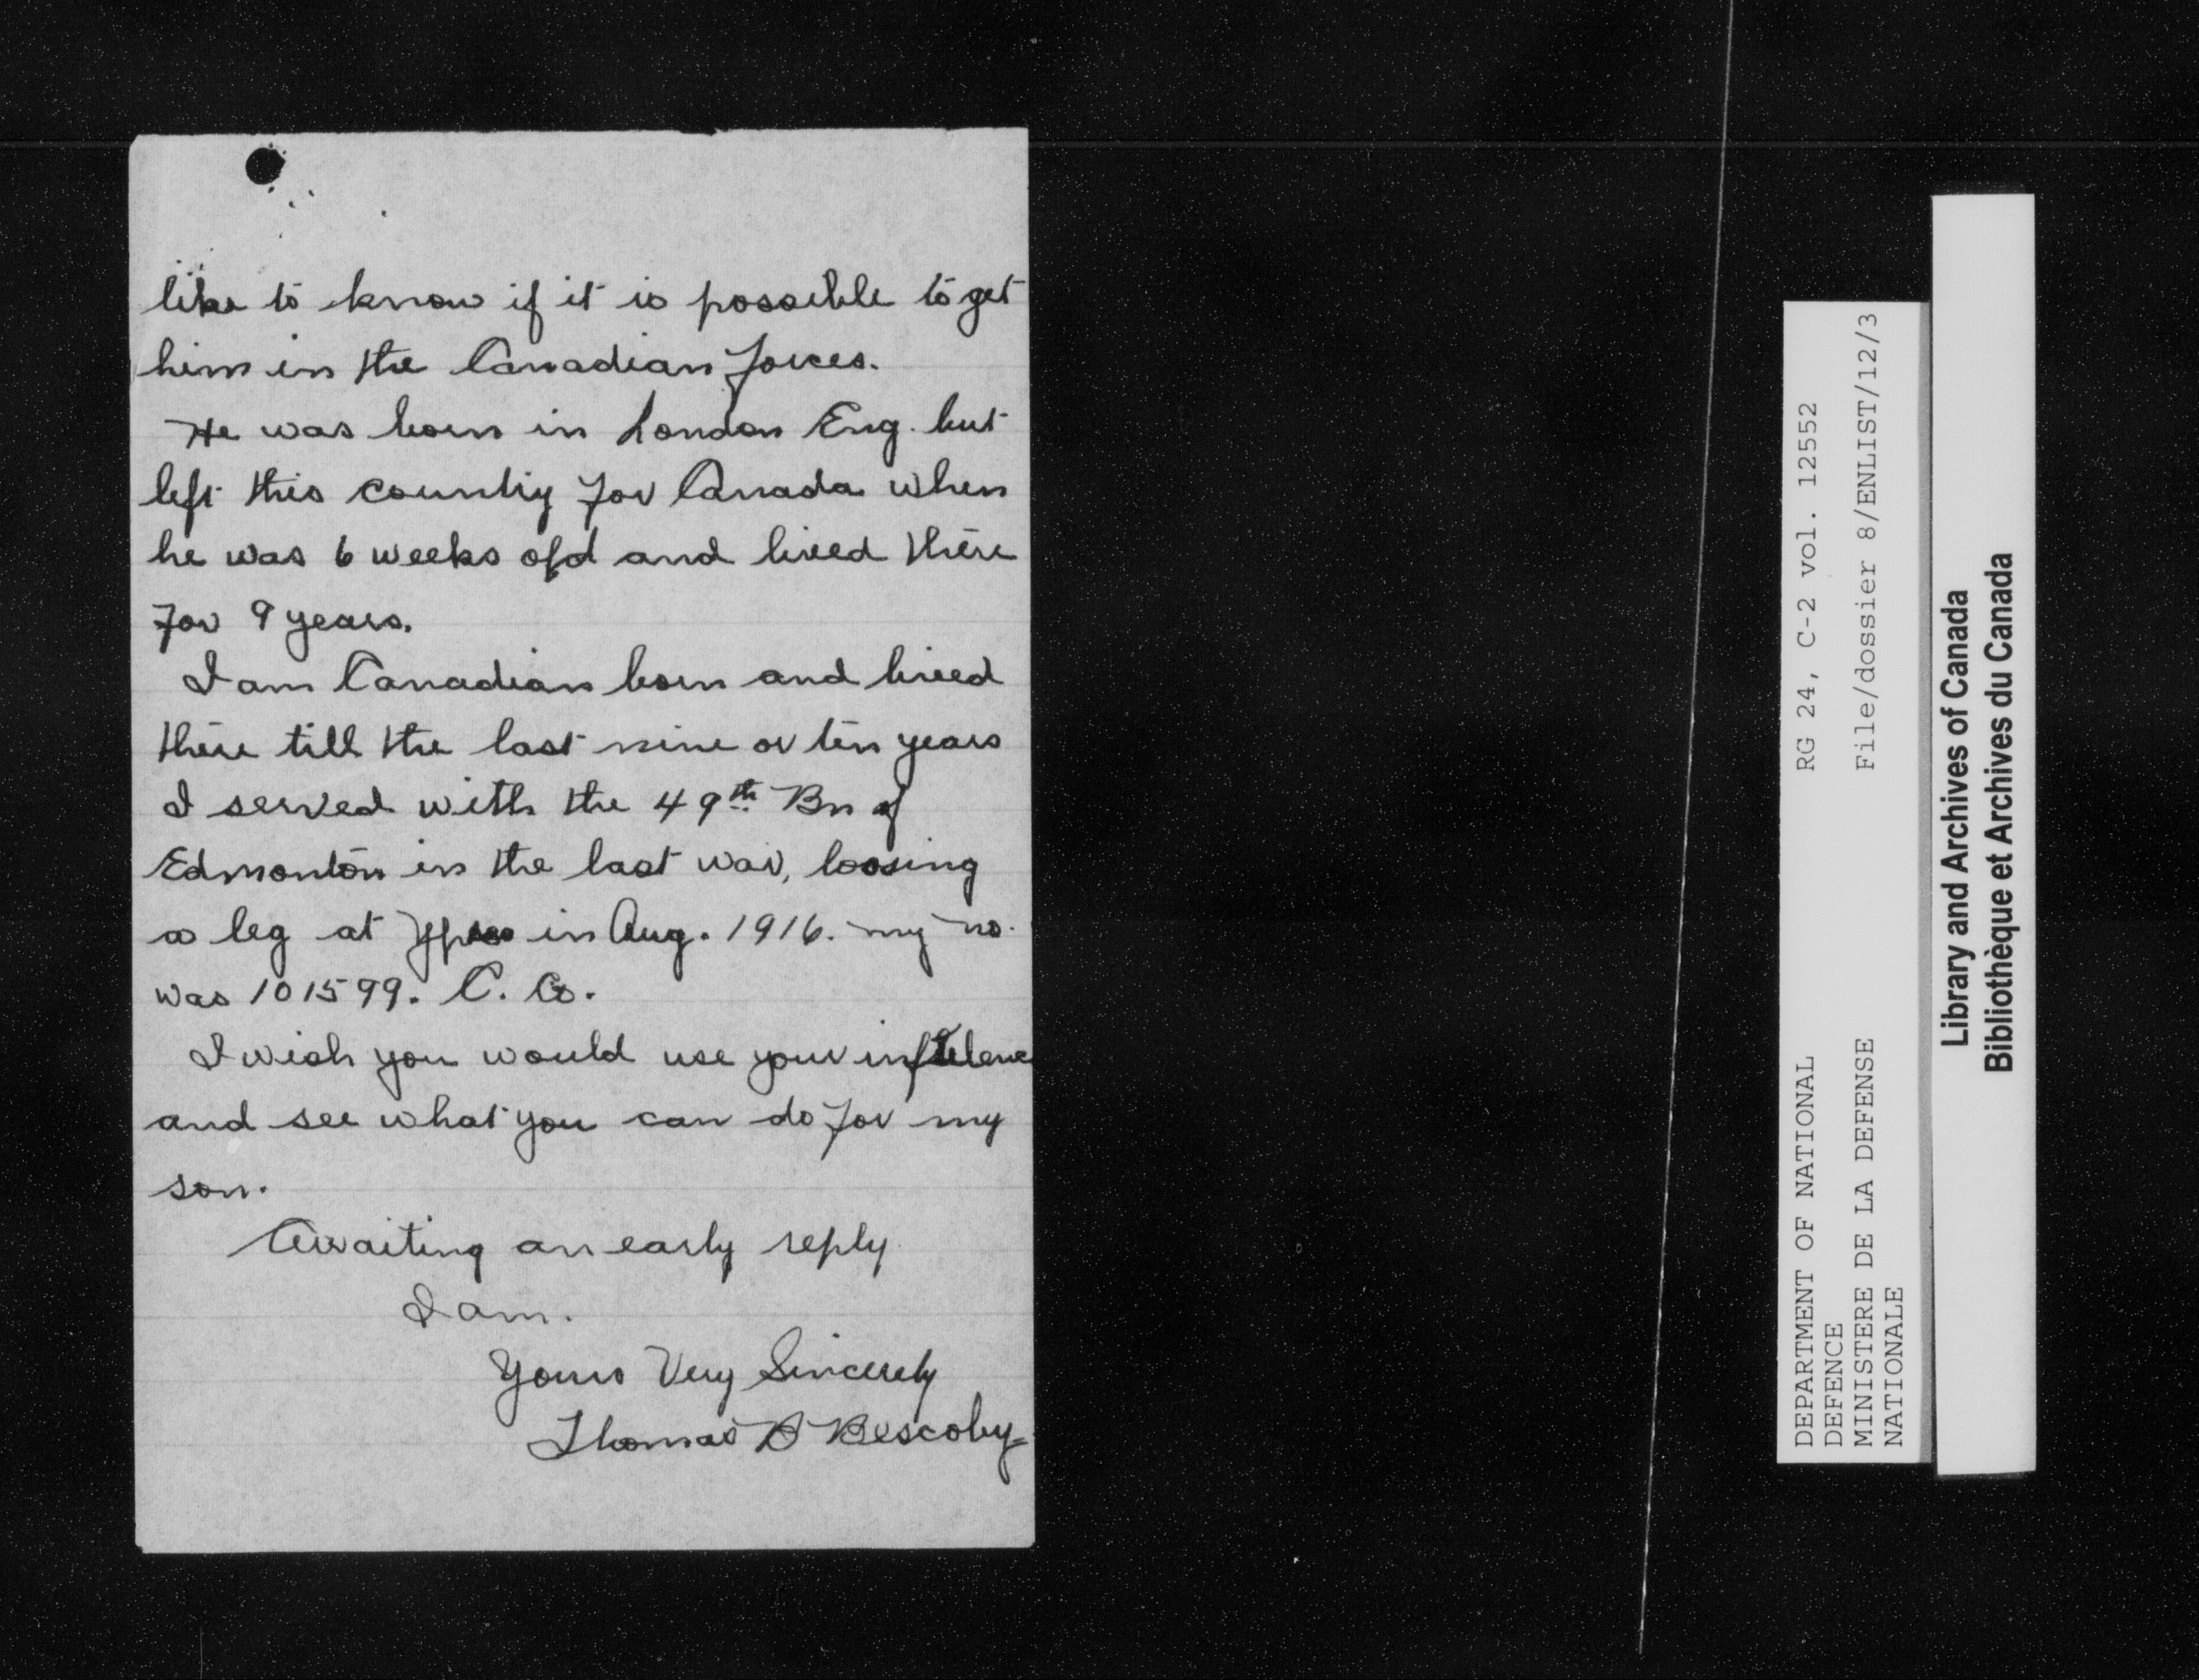 like to know if it is possible to get
him in the Canadian forces.
He was born in London Eng. but
left this country for Canada when
he was 6 weeks old and lived there
for 9 years.
I am Canadian born and lived
there till the last nine or ten years
I served with the 49th Bn of
Edmonton in the last war, loosing
a leg at Ypres in Aug. 1916. my no.
was 101599. C. Co.
I wish you would use your
and see what you can do for my
son.
Awaiting an early reply
I am.
Yours Very Sincerely
Thomas B Bescoby
DEPARTMENT OF NATIONAL
DEFENCE
MINISTERE DE LA DEFENSE
NATIONALE
RG 24, C-2 vol. 12552
File/dossier 8/ENLIST/12/3
Library and Archives of Canada
Bibliothèque et Archives du Canada